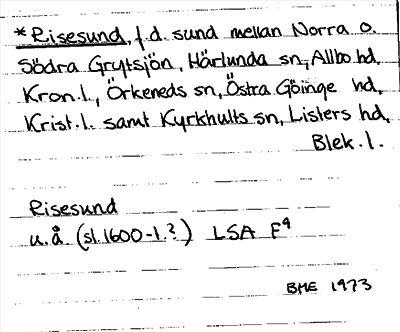 *Risesund, f.d. sund mellan Norra o.
Södra Grytsjön, Härlunda sn, Allbo hd,
Kron.l., Örkeneds sn, Östra Göinge hd,
Krist.l. samt Kyrkhults sn, Listers hd,
Blek.l.
Risesund
u.å. (sl.1600-t.?) LSA F9
BME 1973